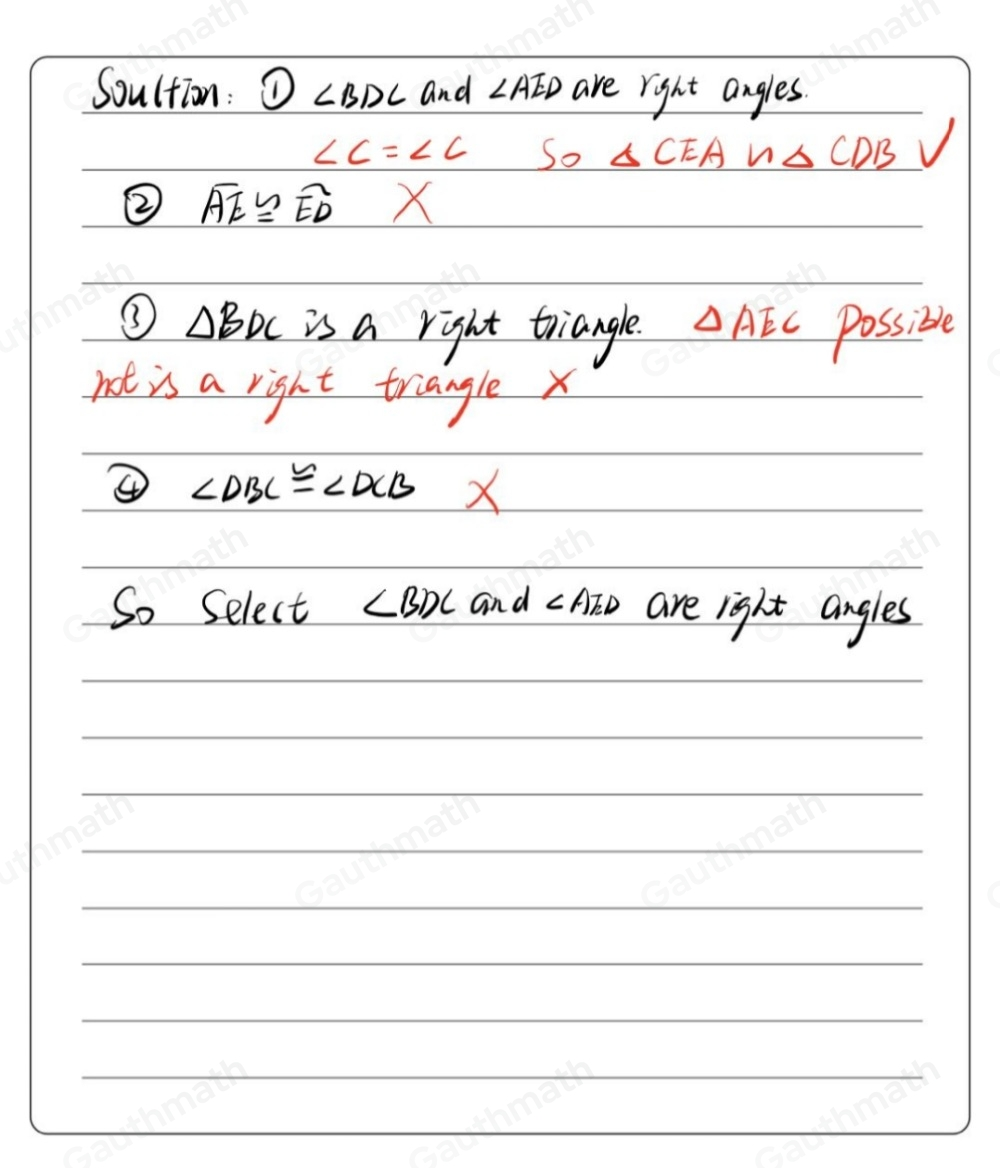 Soultion: ① ∠BDC and ∠AED are right angles.
∠C=∠C So △CEA ∽ △CDB ✓
② AE ≅ ED ✗
③ △BDC is a right triangle. △AEC possible
not is a right triangle ✗
④ ∠DBC ≅ ∠DCB ✗
So Select ∠BDC and ∠AED are right angles
Gauthmath